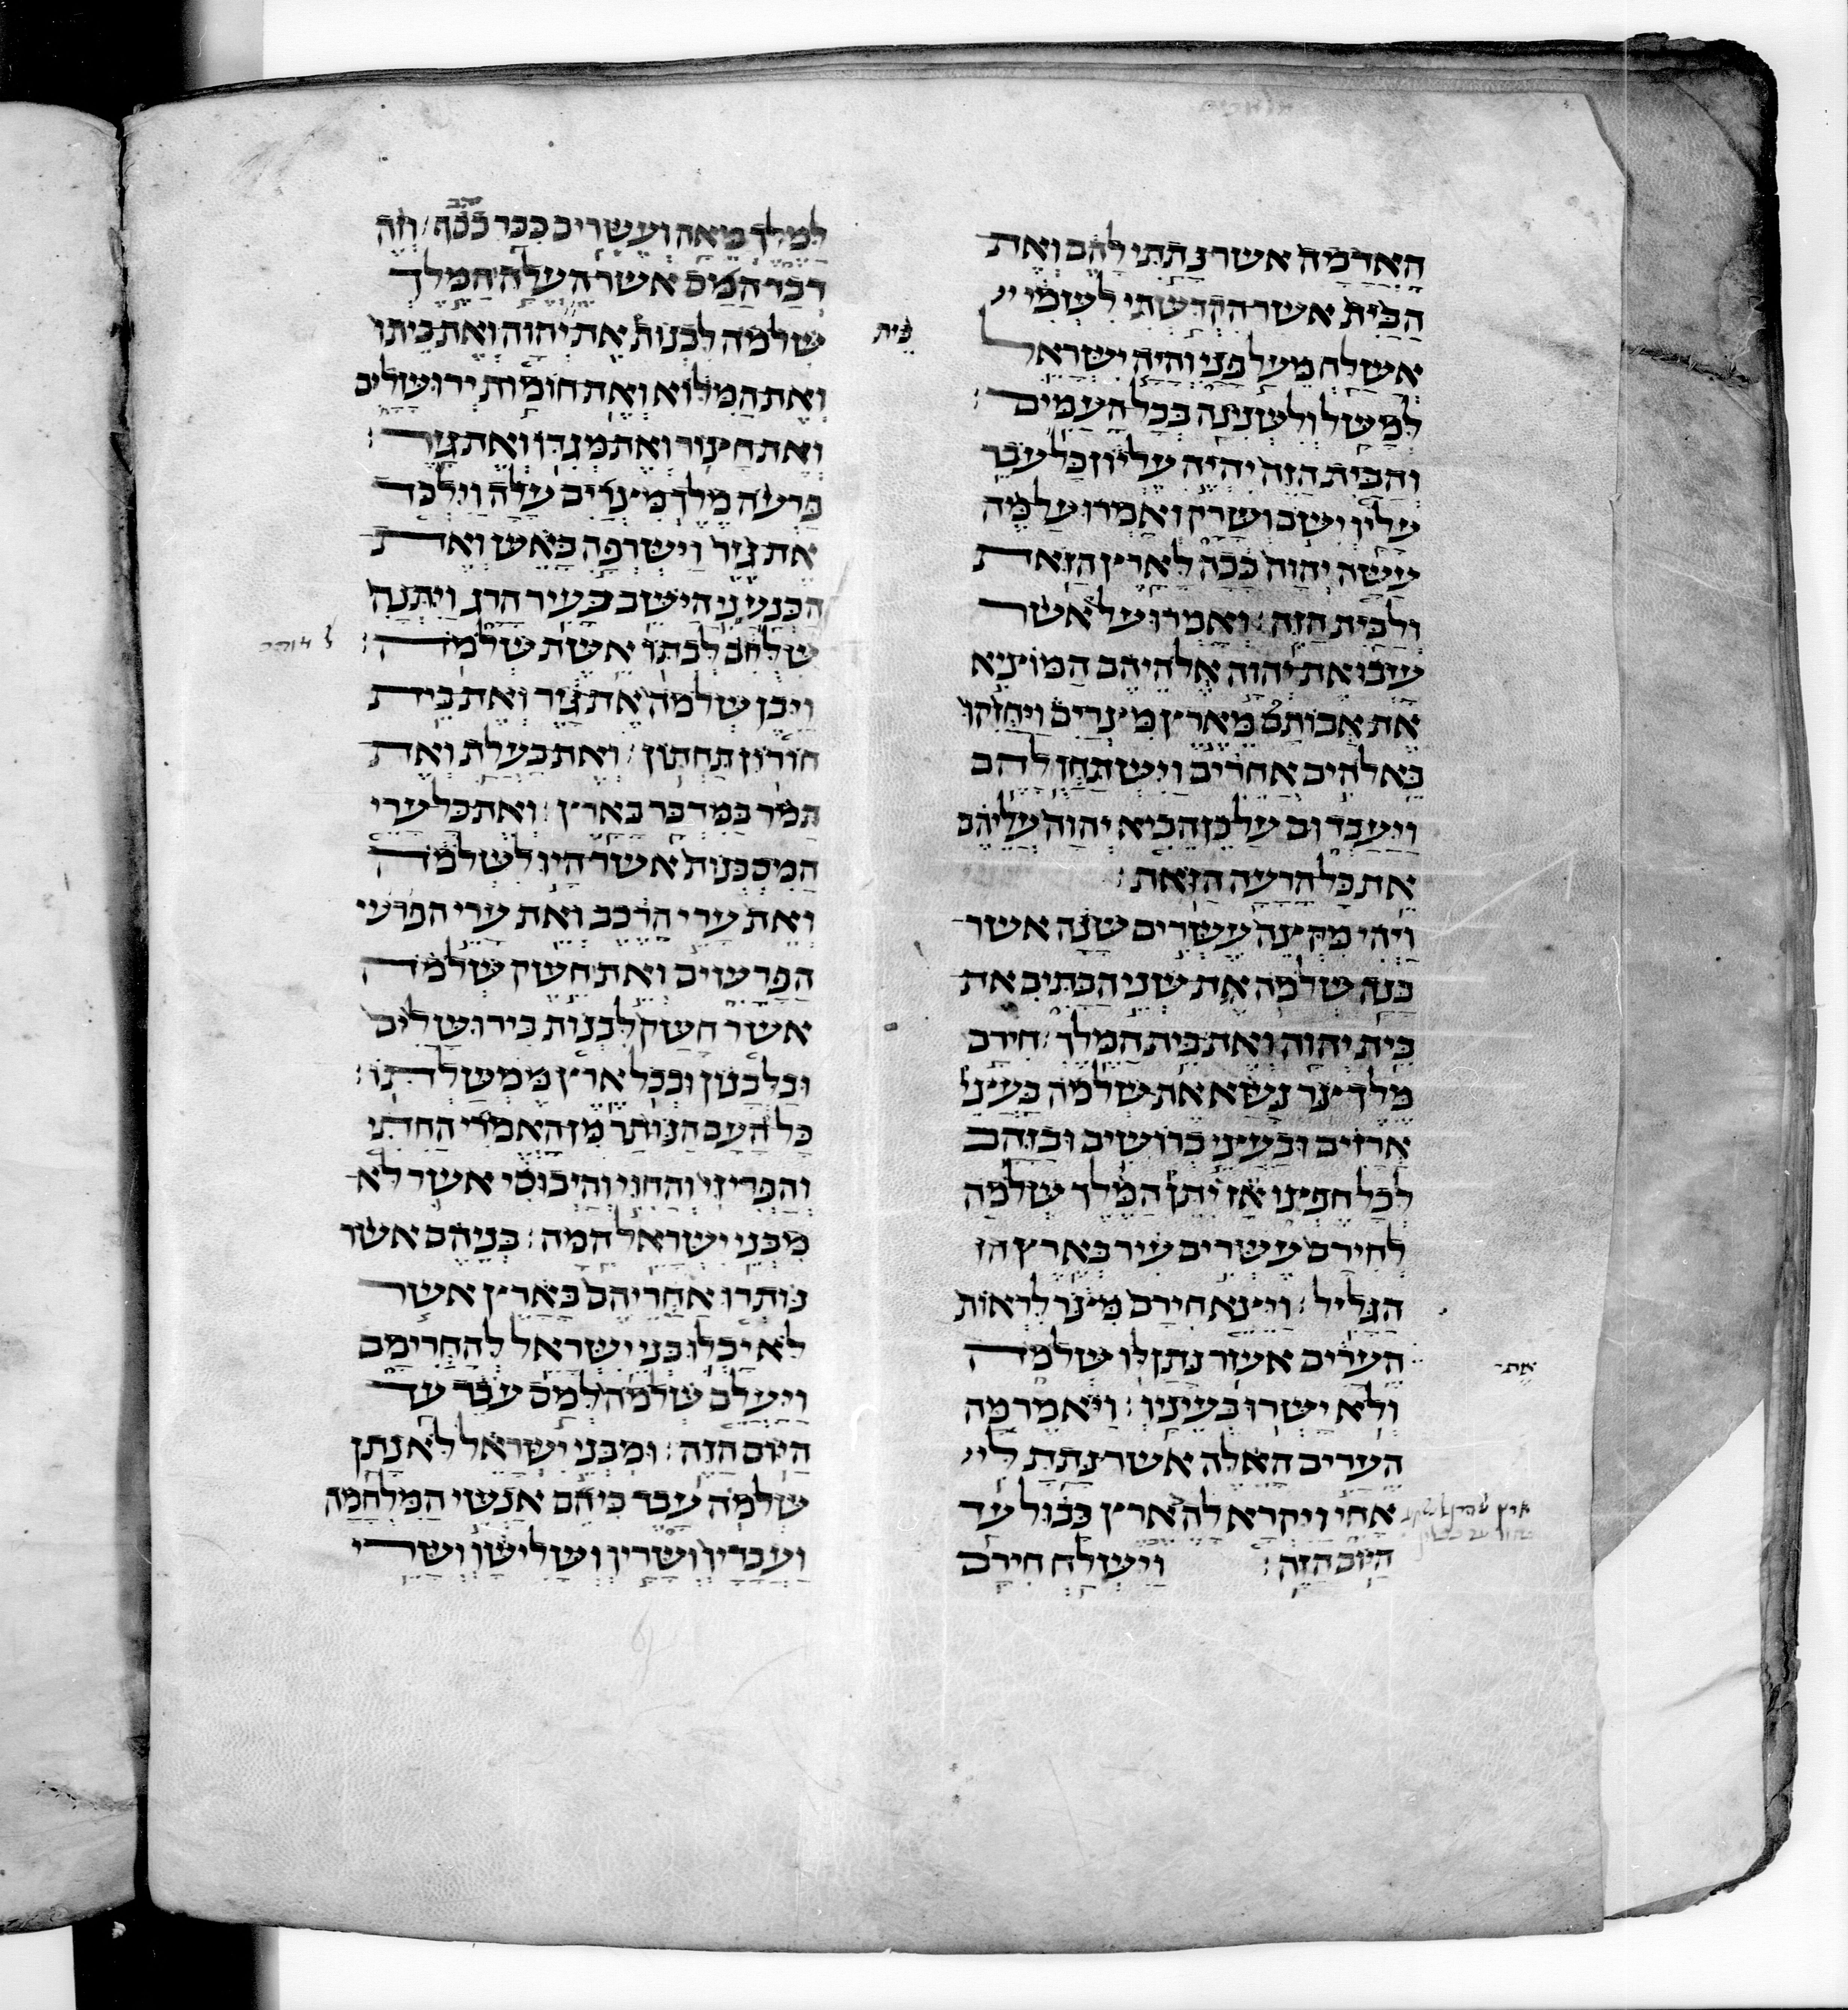 האדמה אשר נתתי להם ואת
הבית אשר הקדשתי לשמי
אשלח מעל פני והיה ישראל
למשל ולשנינה בכל העמים:
והבית הזה יהיה עליון כל עבר
עליו ישם ושרק ואמרו על מה
עשה יהוה ככה לארץ הזאת
ולבית הזה: ואמרו על אשר
עזבו את יהוה אלהיהם המוציא
את אבותם מארץ מצרים ויחזקו
באלהים אחרים וישתחו להם
ויעבדום על כן הביא יהוה עליהם
את כל הרעה הזאת:
ויהי מקצה עשרים שנה אשר
בנה שלמה את שני הבתים את
בית יהוה ואת בית המלך: חירם
מלך צר נשא את שלמה בעצי
ארזים ובעצי ברושים ובזהב
לכל חפצו אז יתן המלך שלמה
לחירם עשרים עיר בארץ הז
הגליל: ויצא חירם מצר לראות
הערים אשר נתן לו שלמה
את
ולא ישרו בעיניו: ויאמר מה
הערים האלה אשר נתת לי
אחי ויקרא להם ארץ כבול עד
היום הזה: וישלח חירם
למלך מאה ועשרים ככר זהב: וזה
דבר המס אשר העלה המלך
שלמה לבנות את יהוה ואת ביתו
בית
ואת המלוא ואת חומות ירושלים
ואת חצור ואת מגדו ואת גזר:
פרעה מלך מצרים עלה וילכד
את גזר וישרפה באש ואת
הכנעני הישב בעיר הרג ויתנה
שלחים לבתו אשת שלמה:
ויבן שלמה את גזר ואת בית
חורון תחתון: ואת בעלת ואת
תמר במדבר בארץ: ואת כל ערי
המסכנות אשר היו לשלמה
ואת ערי הרכב ואת ערי הפרשי
הפרשים ואת חשק שלמה
אשר חשק לבנות בירושלים
ובלבנון ובכל ארץ ממשלתו:
כל העם הנותר מן האמרי החתי
והפריזי והחוי והיבוסי אשר לא
מבני ישראל המה: בניהם אשר
נותרו אחריהם בארץ אשר
לא יכלו בני ישראל להחרימם
ויעלם שלמה למס עבד עד
היום הזה: ומבני ישראל לא נתן
שלמה עבד כי הם אנשי המלחמה
ועבדיו ושריו ושלישיו ושרי